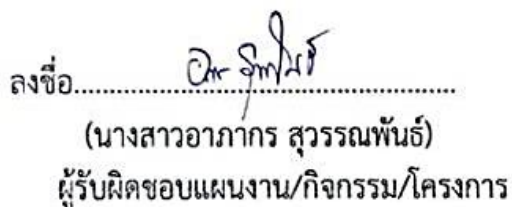 ลงชื่อ..................................................
(นางสาวอาภากร สุวรรณพันธ์)
ผู้รับผิดชอบแผนงาน/กิจกรรม/โครงการ